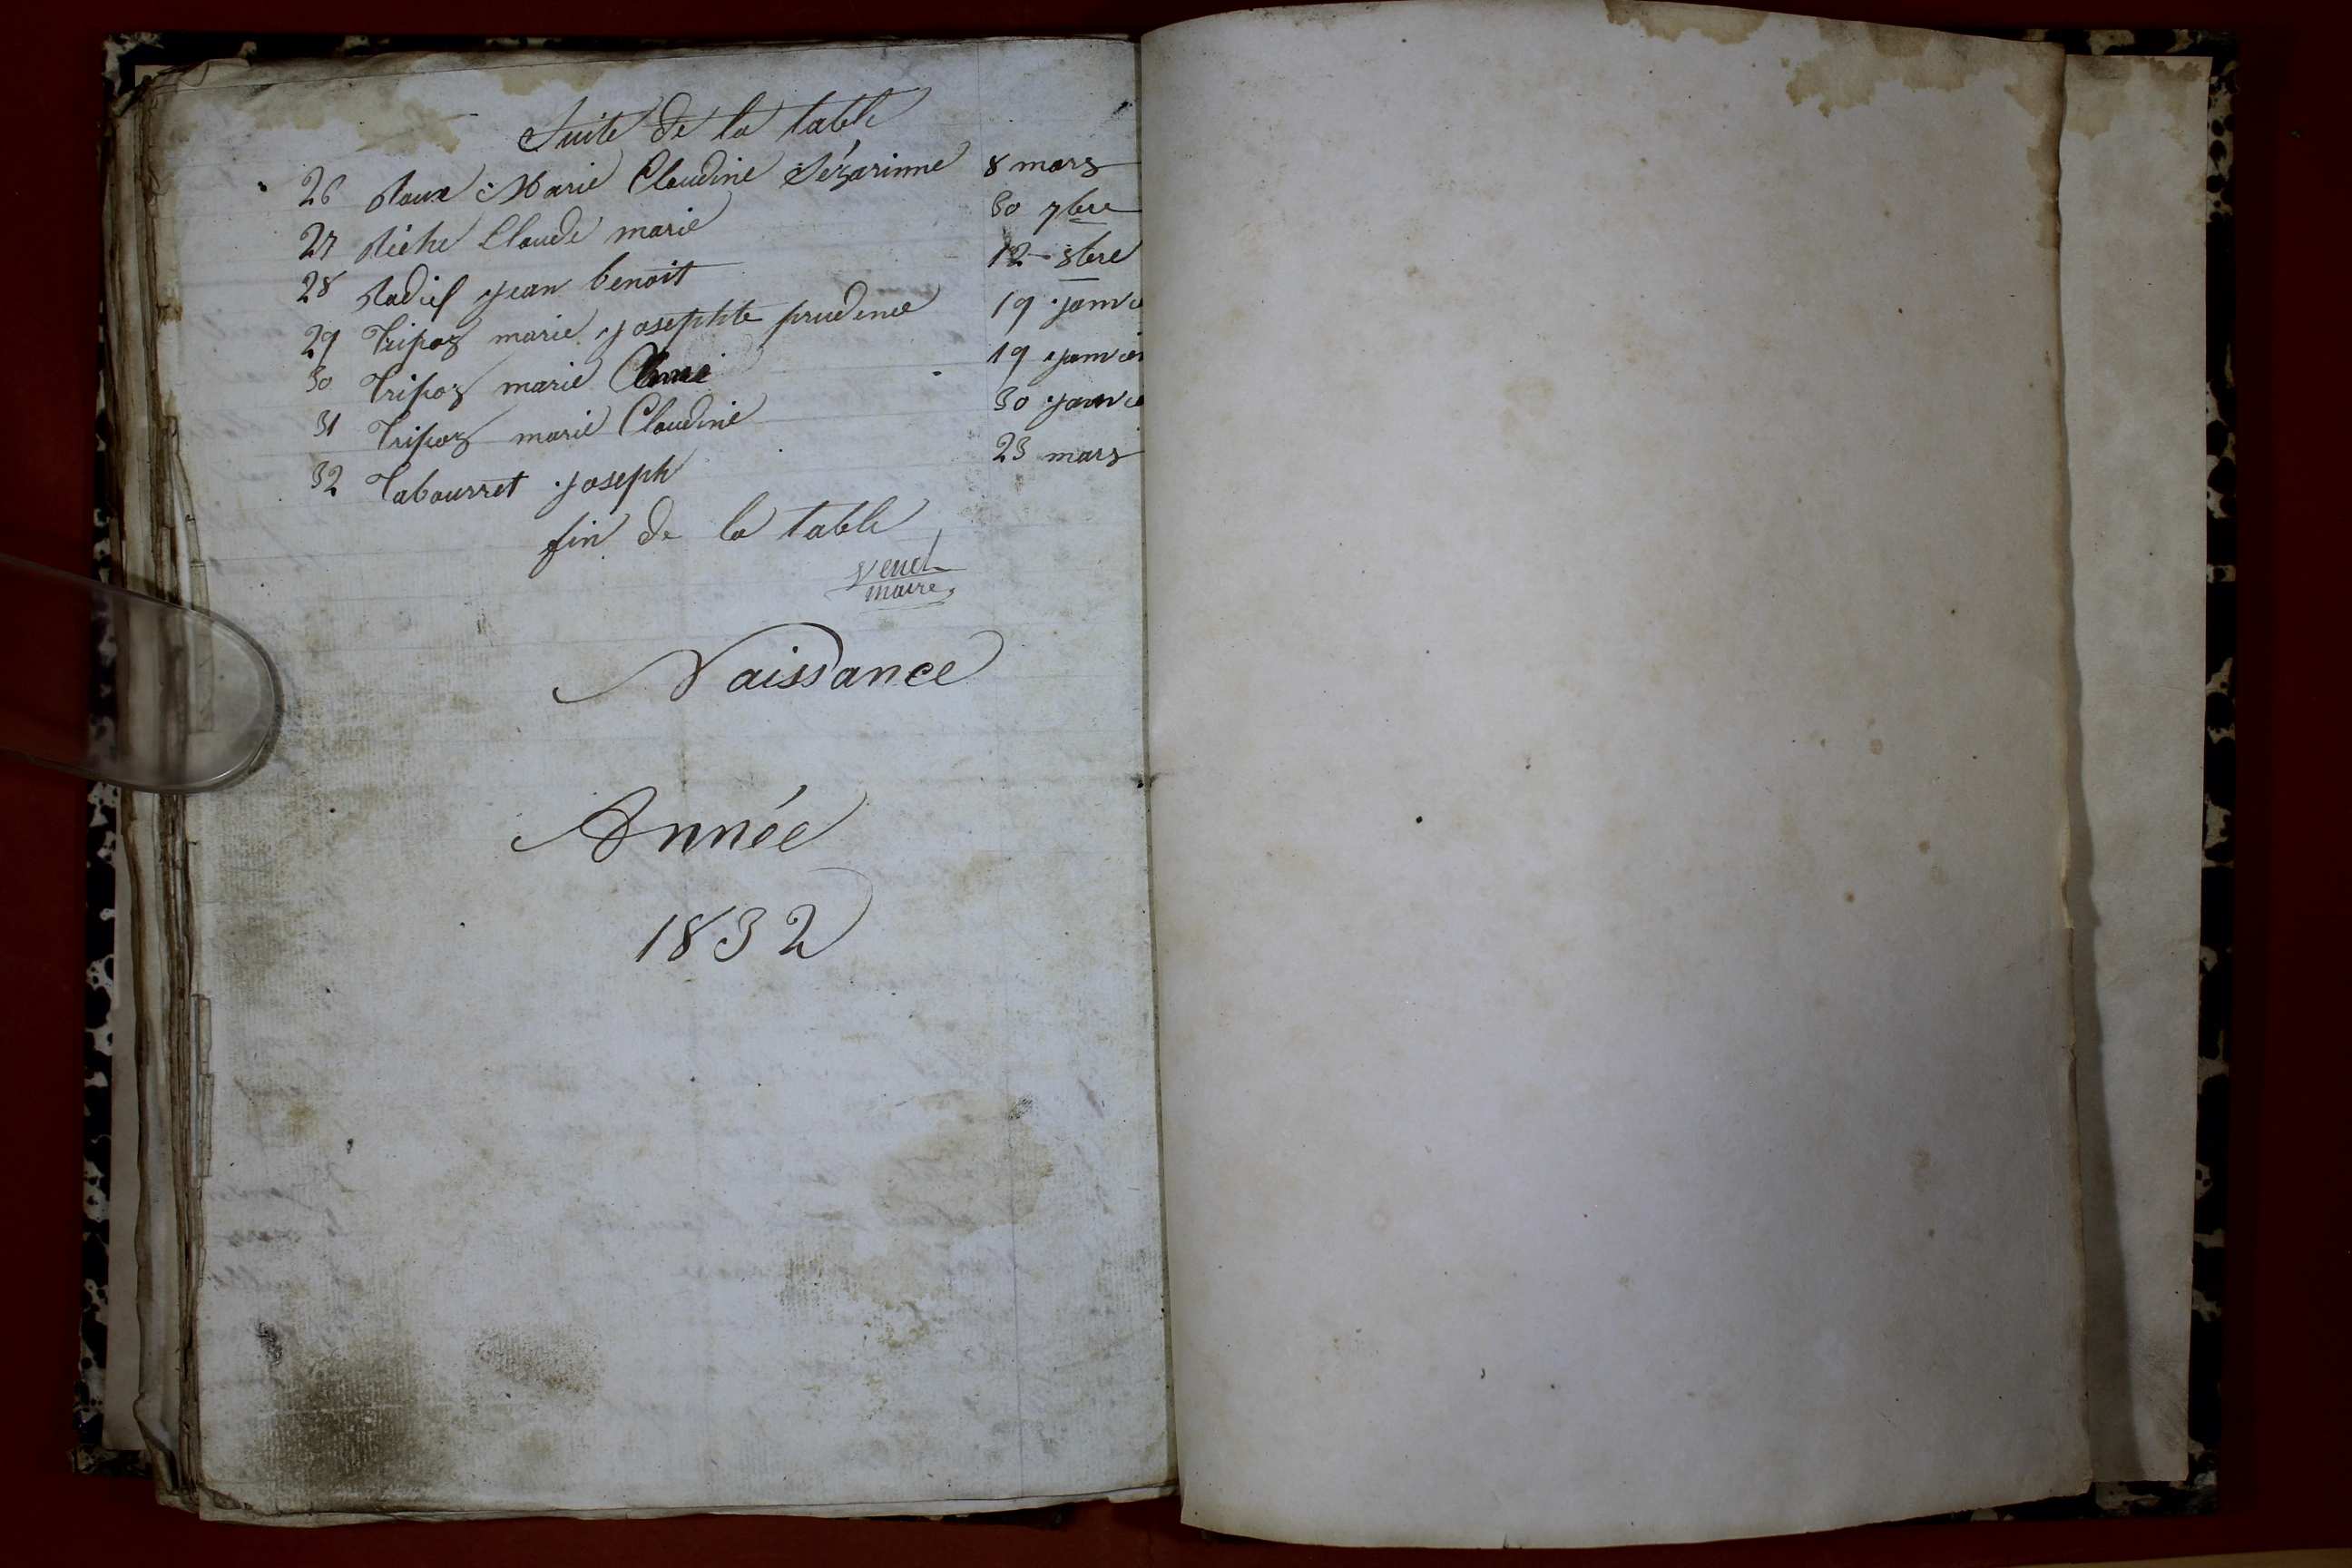 Suite de la table
26 Roux Marie Claudine Sézarinne 8 mars
27 Riche Claude marie 30 7bre
28 Radief jean benoit 12 8bre
29 Tripoz marie josephte prudence 19 janvie
30 Tripoz marie 19 janvier
31 Tripoz marie Claudine 30 janvie
32 Tabourret joseph 23 mars
fin de la table
maire
Naissance
Année
1832